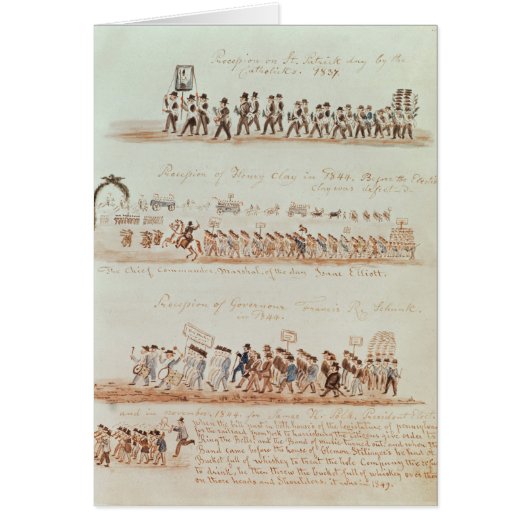 Procession on St. Patrick day by the
Catholicks. 1837.
Procession of Henry Clay in 1844. Before the Electi
Clay was defeat d.
The Chief Commander, Marshal, of the day Isaac Elliott.
Procession of Governour Francis R. Schunk.
in 1844.
and in november. 1844. for James K. Polk, President Elect
When the bill past in both houses of the legislature of pennsylvan
for the removel from York to harrisburg the citizens give order to
Ring the Bells, and the Band of music turned out and when the
Band came before the house of Clemon Stillinger's he had a
Bucket full of whiskey to treat the hole Company the
to drink, he then threw the bucket full of whiskey over them
on those heads and Shoulders, it was in